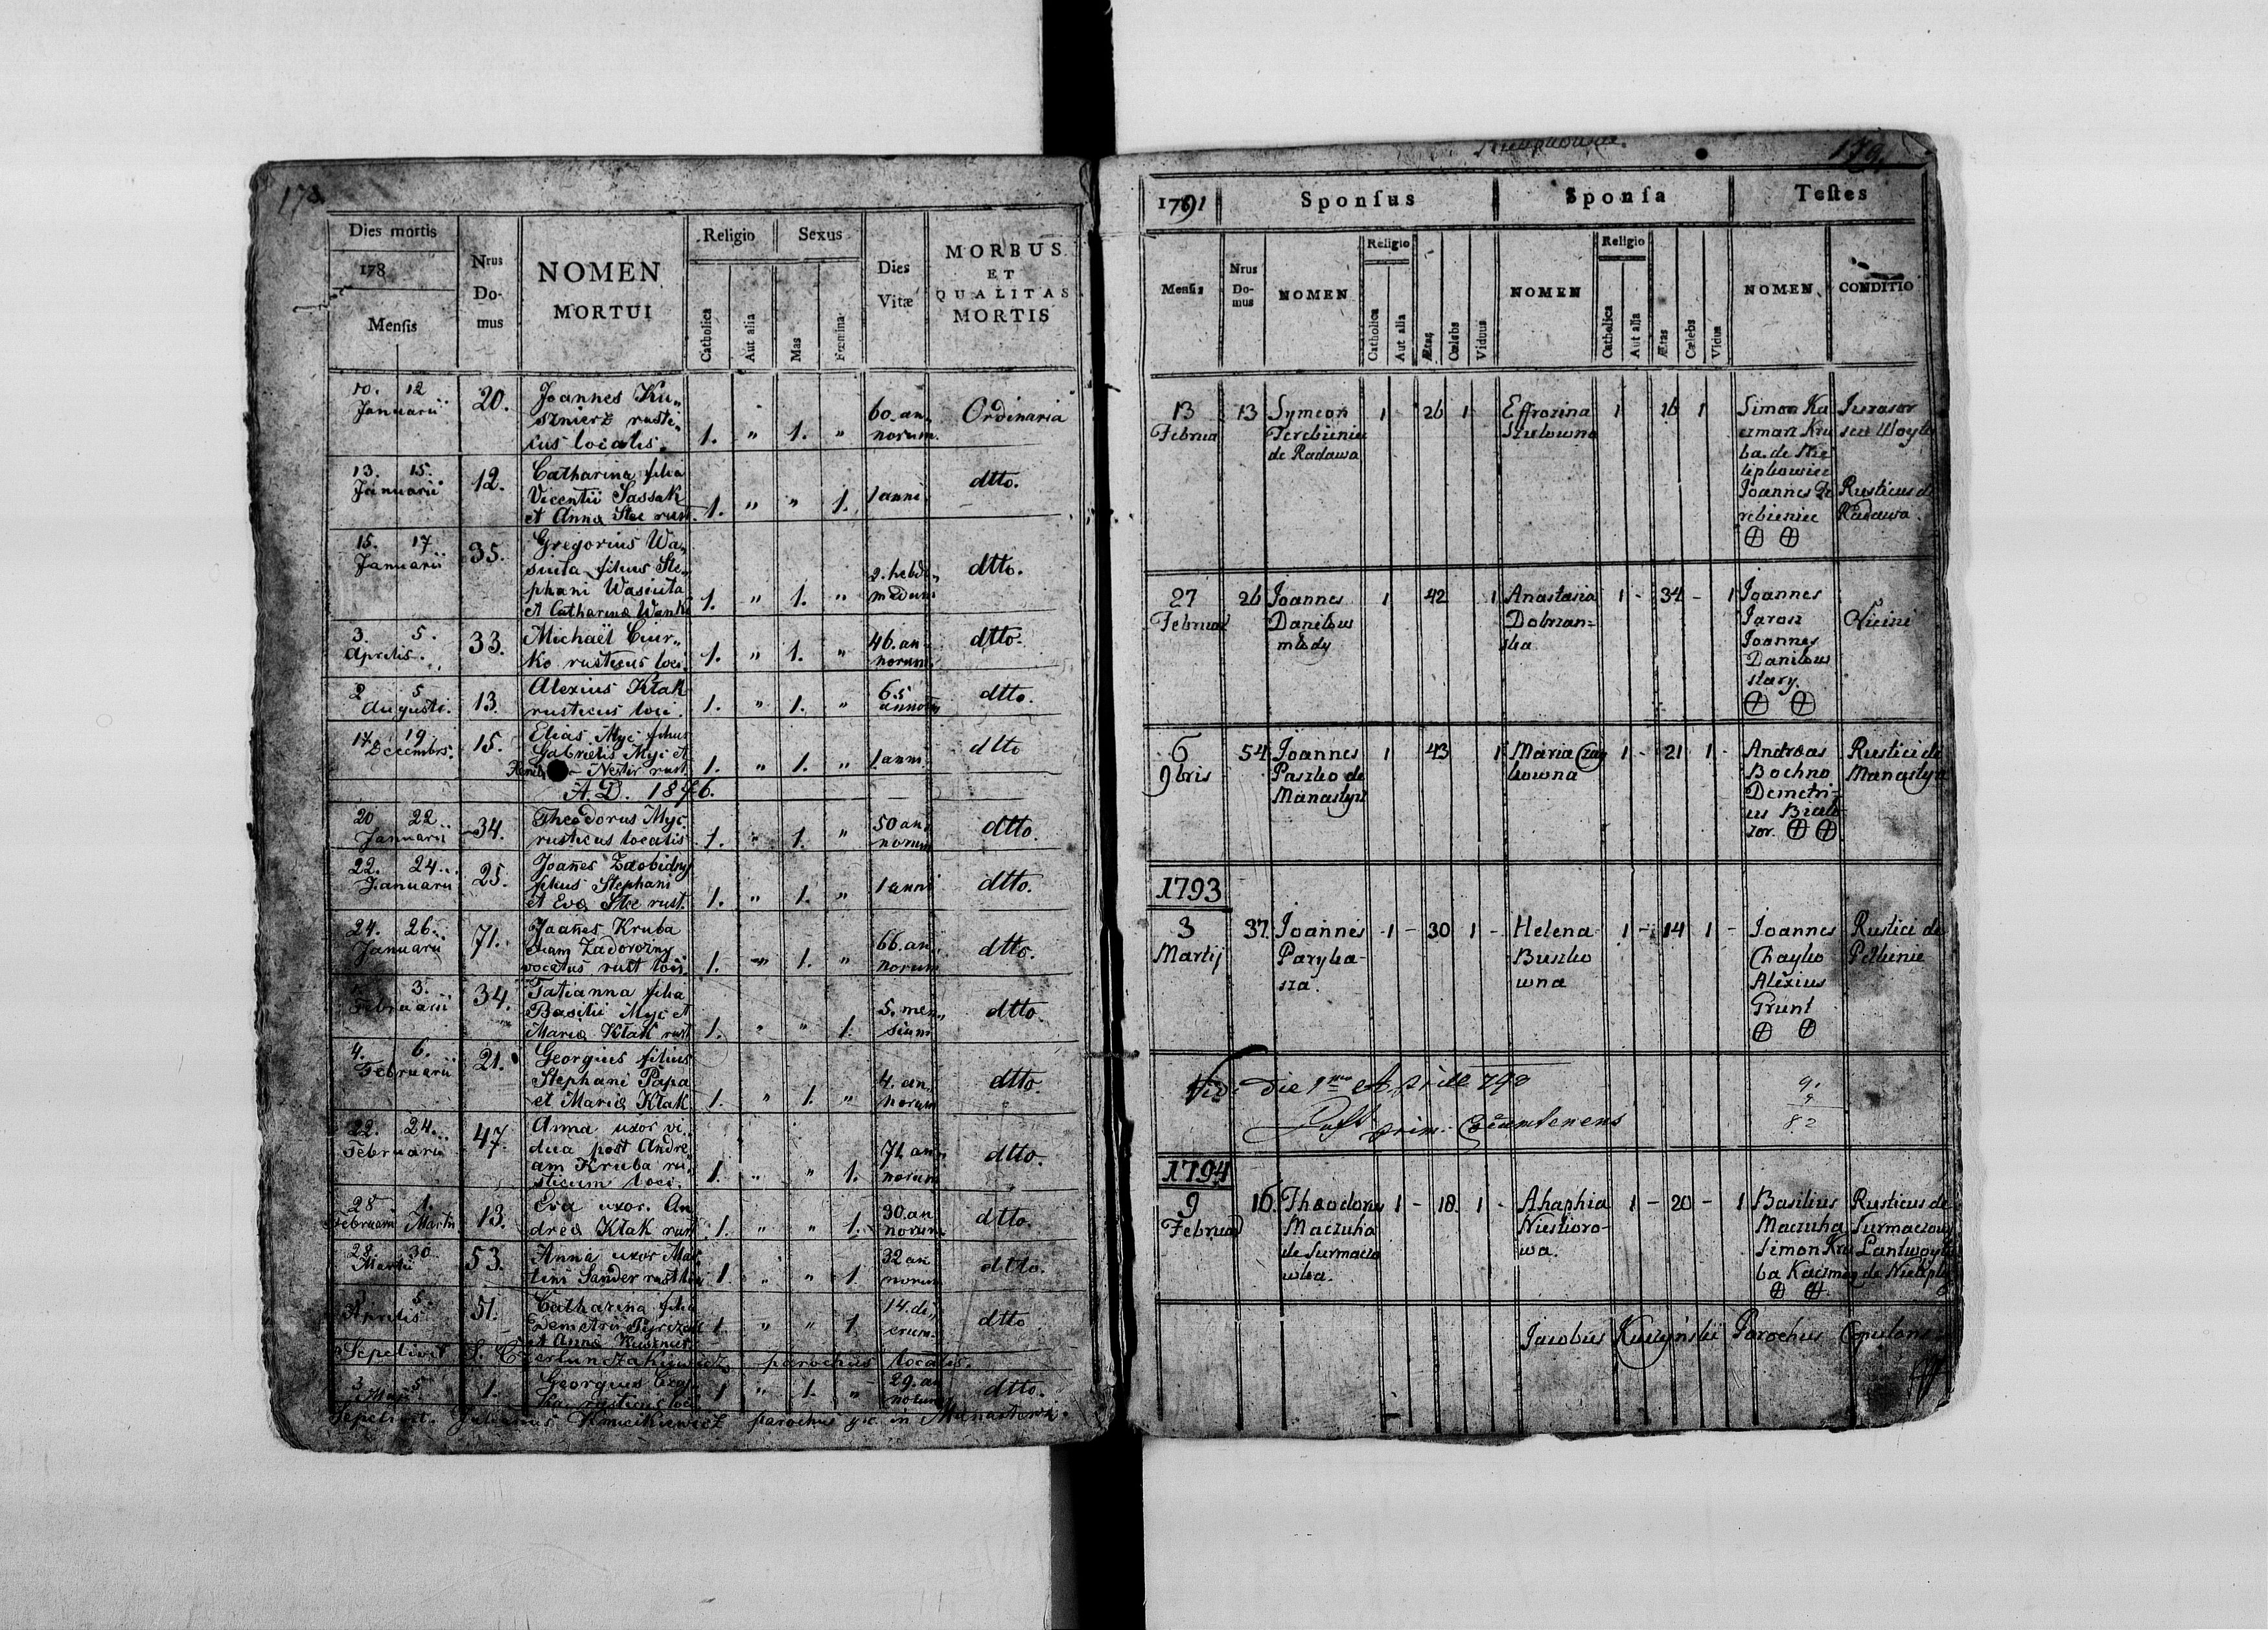 178.
Dies mortis
178
Mensis
Nrus
Do-
mus
NOMEN
MORTUI
Religio
Catholica
Aut alia
Sexus
Mas
Fœmina
Dies
Vitæ
MORBUS
ET
QUALITAS
MORTIS
10. 12
Januarii
20.
Joannes Ku„
sznierz rusti„
cus localis.
1. „ 1. „
60. an„
norum.
Ordinaria
13. 15.
Januarii
12.
Catharina filia
Vicentii Sassak
et Anna Stec rust.
1. „ „ 1.
1 anni
dtto.
15. 17.
Januarii
35.
Gregorius Wa„
siuta filius Ste„
phani Wasiuta
et Catharina Wanko
1. „ 1. „
2. hebdo„
madum
dtto.
3. 5.
Aprilis.
33.
Michaël Ciur„
ko rusticus loci.
1. „ 1. „
46. an„
norum.
dtto.
2 5
Augusti.
13.
Alexius Kłak
rusticus loci.
1. „ 1. „
65
annorum
dtto.
17 19
Decembris.
15.
Elias Myc filius
Gabrielis Myc et
Nestir rust.
1. „ 1. „
1 anni
dtto
A. D. 1846.
20 22
Januarii
34.
Theodorus Myc
rusticus localis
1. „ 1. „
50 an„
norum
dtto.
22. 24.
Januarii
25.
Joañes Zaobidny
filius Stephani
et Eva Stec rust.
1. „ 1. „
1 anni
dtto.
24. 26.
Januarii
71.
Joañes Kruba
etiam Zadorozny
vocatus rust loci.
1. „ 1. „
66. an„
norum
dtto.
3.
Februarii
34.
Tatianna filia
Basilii Myc et
Maria Kłak rust
1. „ „ 1.
5. men„
sium
dtto
4. 6.
Februarii
21.
Georgius filius
Stephani Papa
et Maria Kłak.
1. „ 1. „
4. an„
norum
dtto
22. 24.
Februarii
47.
Anna uxor vi„
dua post Andre„
am Kruba ru„
sticum loci.
1. „ „ 1.
71 an„
norum
dtto.
28 1.
Februarii Martii
13.
Eva uxor An
drea Kłak rust
1. „ „ 1.
30. an
norum
dtto.
28 30
Martii
53.
Anna uxor Mar
tini Sander rust loci
1. „ „ 1.
32 an
norum
dtto.
5
Aprilis
51.
Catharina filia
Demetrii
et Anna Kusznier
1. „ „ 1.
14. di„
erum
dtto
Sepelivit parochus localis.
3 5
Maji
1.
Georgius
ka rusticus loci
1 „ 1. „
29. an
norum
dtto.
Sepelivit. Julianus parochus g.c. in Manasterz.
179.
1791
Sponsus
Sponsa
Testes
Mensis
Nrus
Do-
mus
NOMEN
Religio
Catholica
Aut alia
Ætas
Cœlebs
Viduus
NOMEN
Religio
Catholica
Aut alia
Ætas
Cœlebs
Vidua
NOMEN
CONDITIO
13
Februa
13
Symeon
Terebieniec
de Radawa
1 26 1
Effrozina
Szulowna
1 16 1
Simon Ka
czmarz Kru
ba. de Nie
liepkowice
Joannes Te
rebieniec
⊕ ⊕
Jurasor
seu Woyto
Rusticus de
Radawa.
27
Februar
26
Joannes
Danilow
młody
1 42 1
Anastasia
Dobrzan-
ska
1 - 34 - 1
Joannes
Jarosz
Joannes
Danilow
stary.
⊕ ⊕
Vicini
6
9bris
54
Joannes
Paszko de
Manastyrz
1 43 1
Maria Czay
kowna
1 - 21 1 -
Andreas
Bochno
Demetri-
us Biało
zor. ⊕ ⊕
Rustici de
Manastyrz
1793
3
Martij
37.
Joannes
Paryka-
sza.
1 - 30 1 -
Helena
Buszko
wna
1 - 14 1 -
Joannes
Chayko
Alexius
Grunt
⊕ ⊕
Rustici de
Pełkinie
Vid. die 1ma Aprill 793
9.
82
1794
9
Februar
16.
Theodorus
Maczuha
de Surmaczo
wka.
1 - 18 1 -
Ahaphia
Niestioro-
wa.
1 - 20 - 1
Basilius
Maczuha
Simon Kru
ba Kaczmarz
⊕ ⊕
Rusticus de
Surmaczowy
Lantwoyt
de Nielepk
Jacobus Kuczyński Parochus Copulans